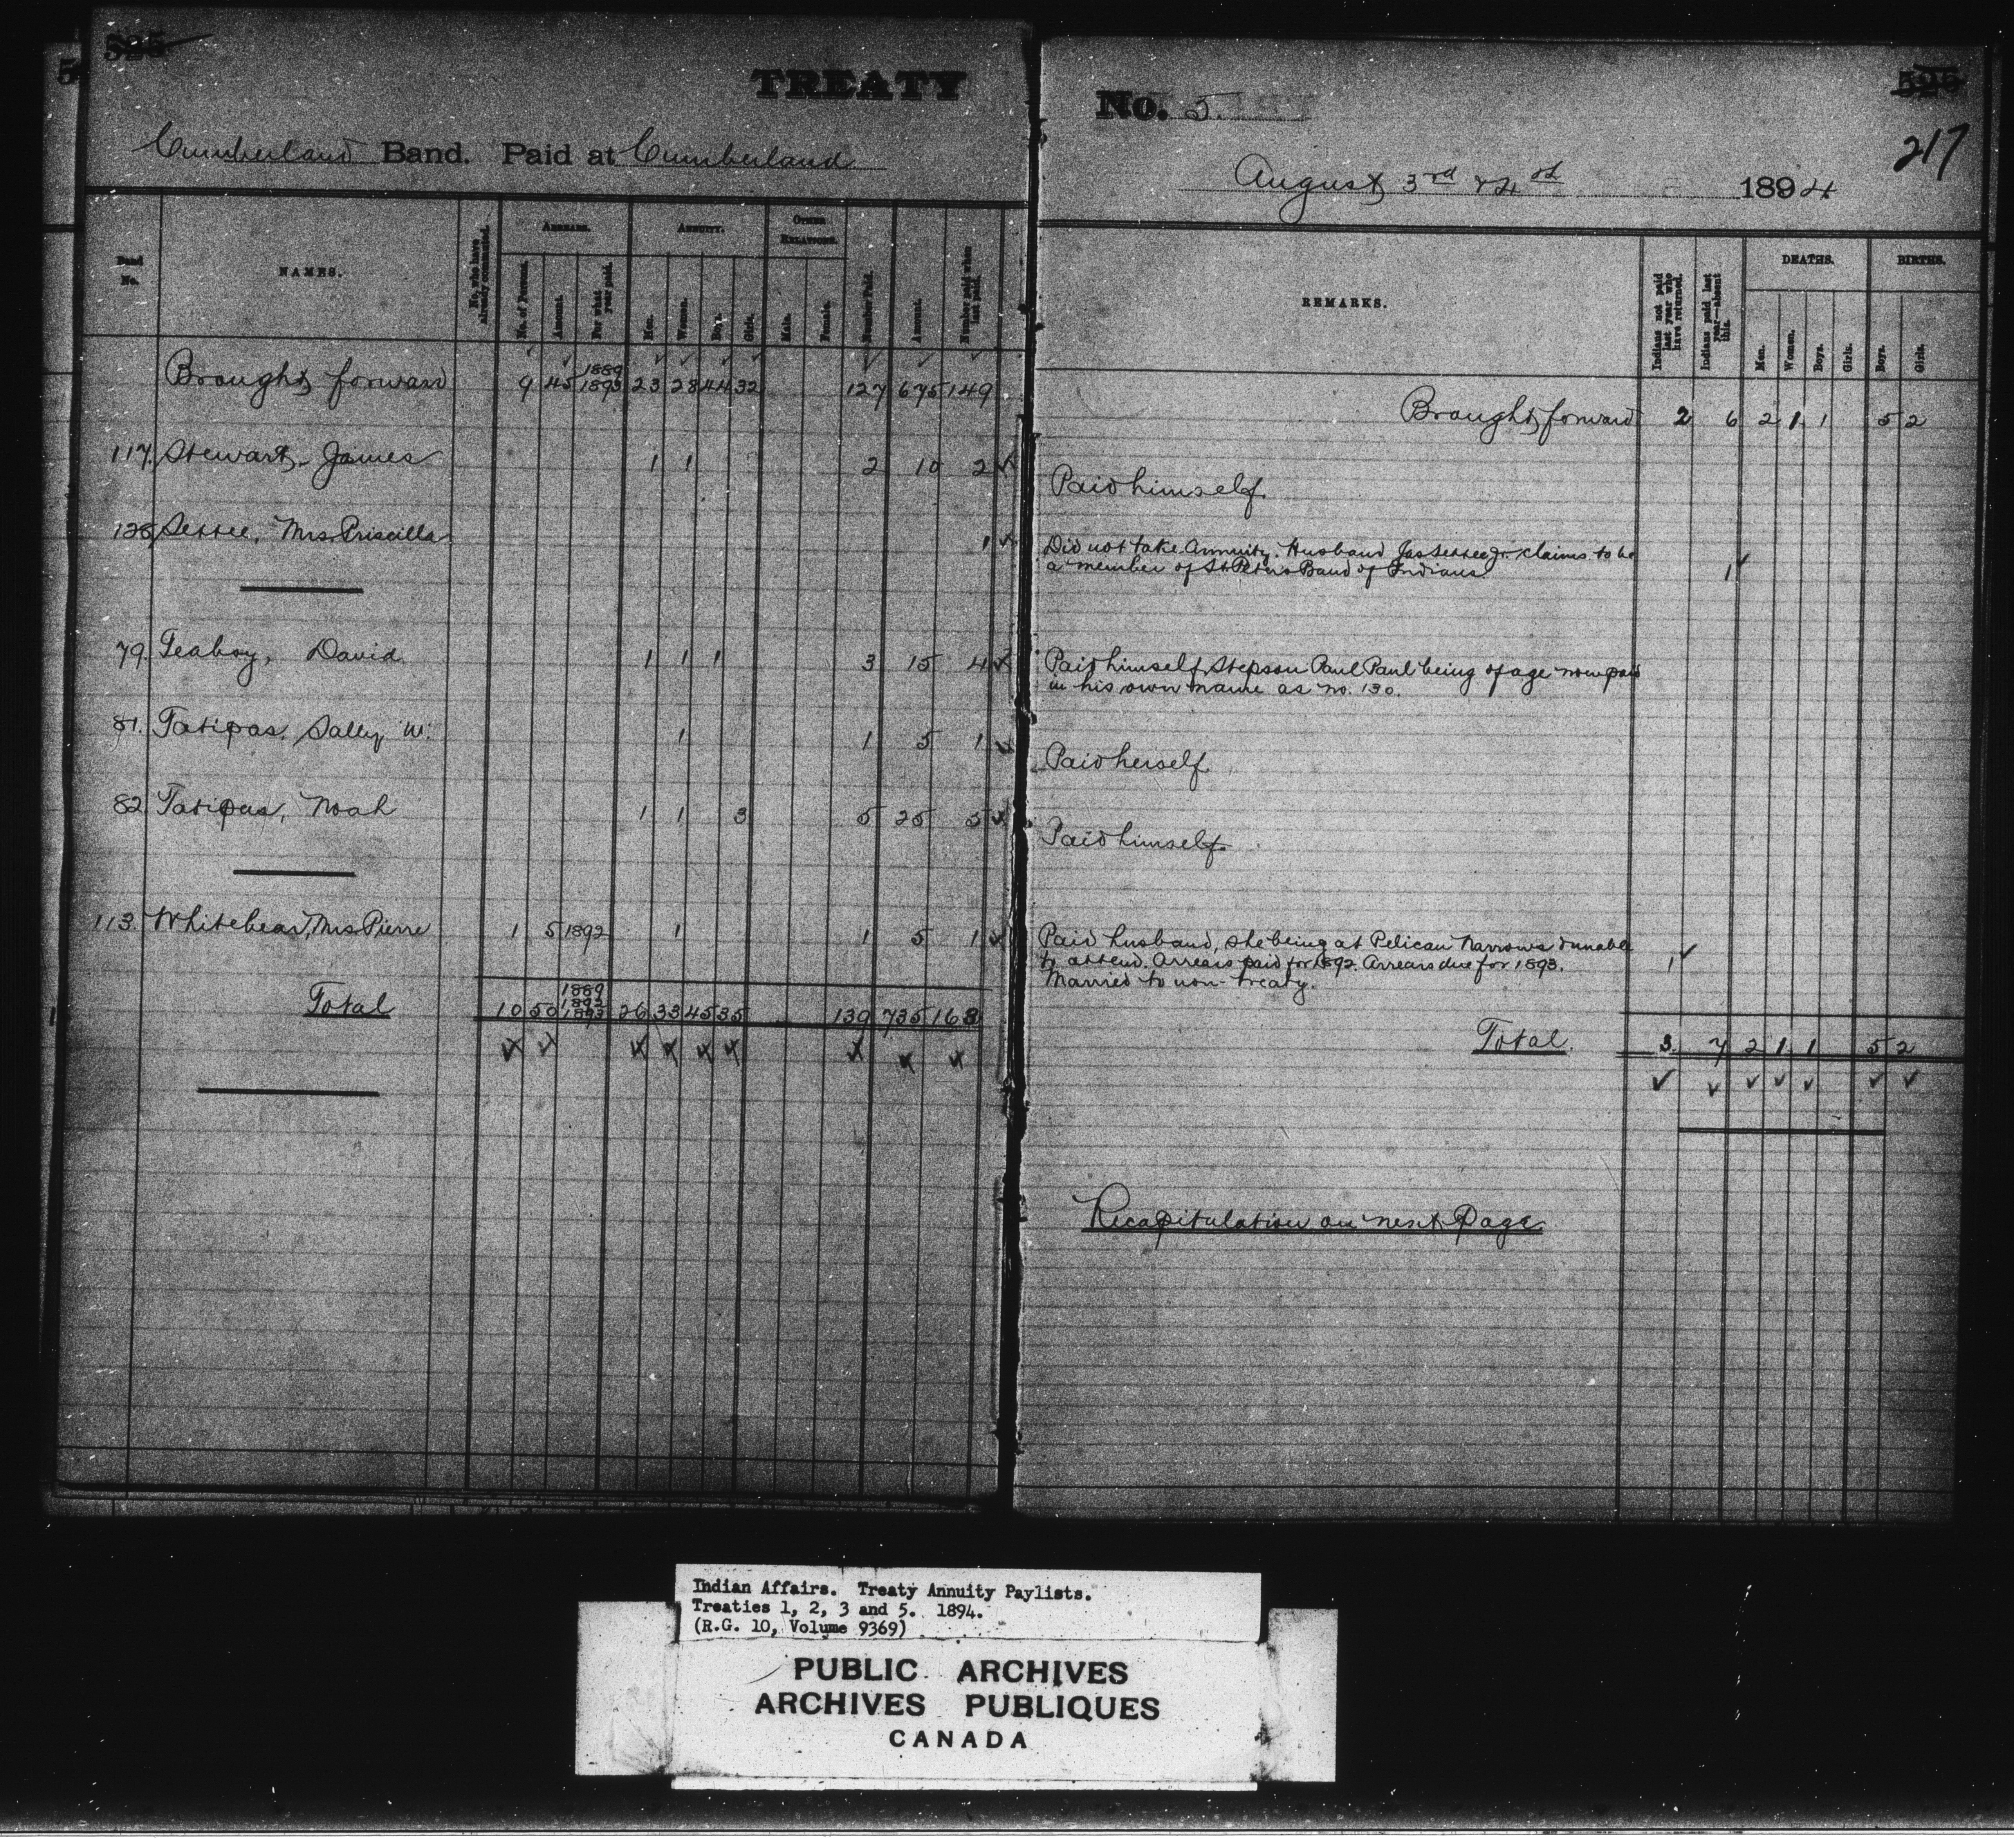 525
TREATY
Cumberland Band. Paid at Cumberland
Band No.
NAMES.
No. who have already commuted.
ARREARS.
No. of Persons.
Amount.
For what year paid.
ANNUITY.
Men.
Women.
Boys.
Girls.
OTHER RELATIONS.
Male.
Female.
Number Paid.
Amount.
Number paid when last paid.
Brought forward 9 45 1889 1893 23 28 44 32 127 675 149
117. Stewart, James 1 1 2 10 2
128. Settee, Mrs. Priscilla 1
79. Teaboy, David 1 1 1 3 15 4
81. Tatipas, Sally W. 1 1 5 1
82. Tatipas, Noah 1 1 3 5 25 5
113. Whitebear, Mrs Pierre 1 5 1892 1 1 5 1
Total 10 50 1889 1892 1893 26 33 45 35 139 735 163
No. 5
525
217
August 3rd & 4th 1894
REMARKS.
Indians not paid last year who have returned.
Indians paid last year—absent this.
DEATHS.
Men.
Women.
Boys.
Girls.
BIRTHS.
Boys.
Girls.
Brought forward 2 6 2 1 1 5 2
Paid himself.
Did not take annuity. Husband Jas Settee Jr. claims to be
a member of St Peters Band of Indians. 1
Paid himself, Stepson Paul Paul being of age now paid
in his own name as no. 130.
Paid herself
Paid himself.
Paid husband, she being at Pelican Narrows & unable
to attend. Arrears paid for 1892. Arrears due for 1893. 1
Married to non-treaty.
Total. 3. 7 2 1 1 5 2
Recapitulation on next Page
Indian Affairs. Treaty Annuity Paylists.
Treaties 1, 2, 3 and 5. 1894.
(R.G. 10, Volume 9369)
PUBLIC ARCHIVES
ARCHIVES PUBLIQUES
CANADA